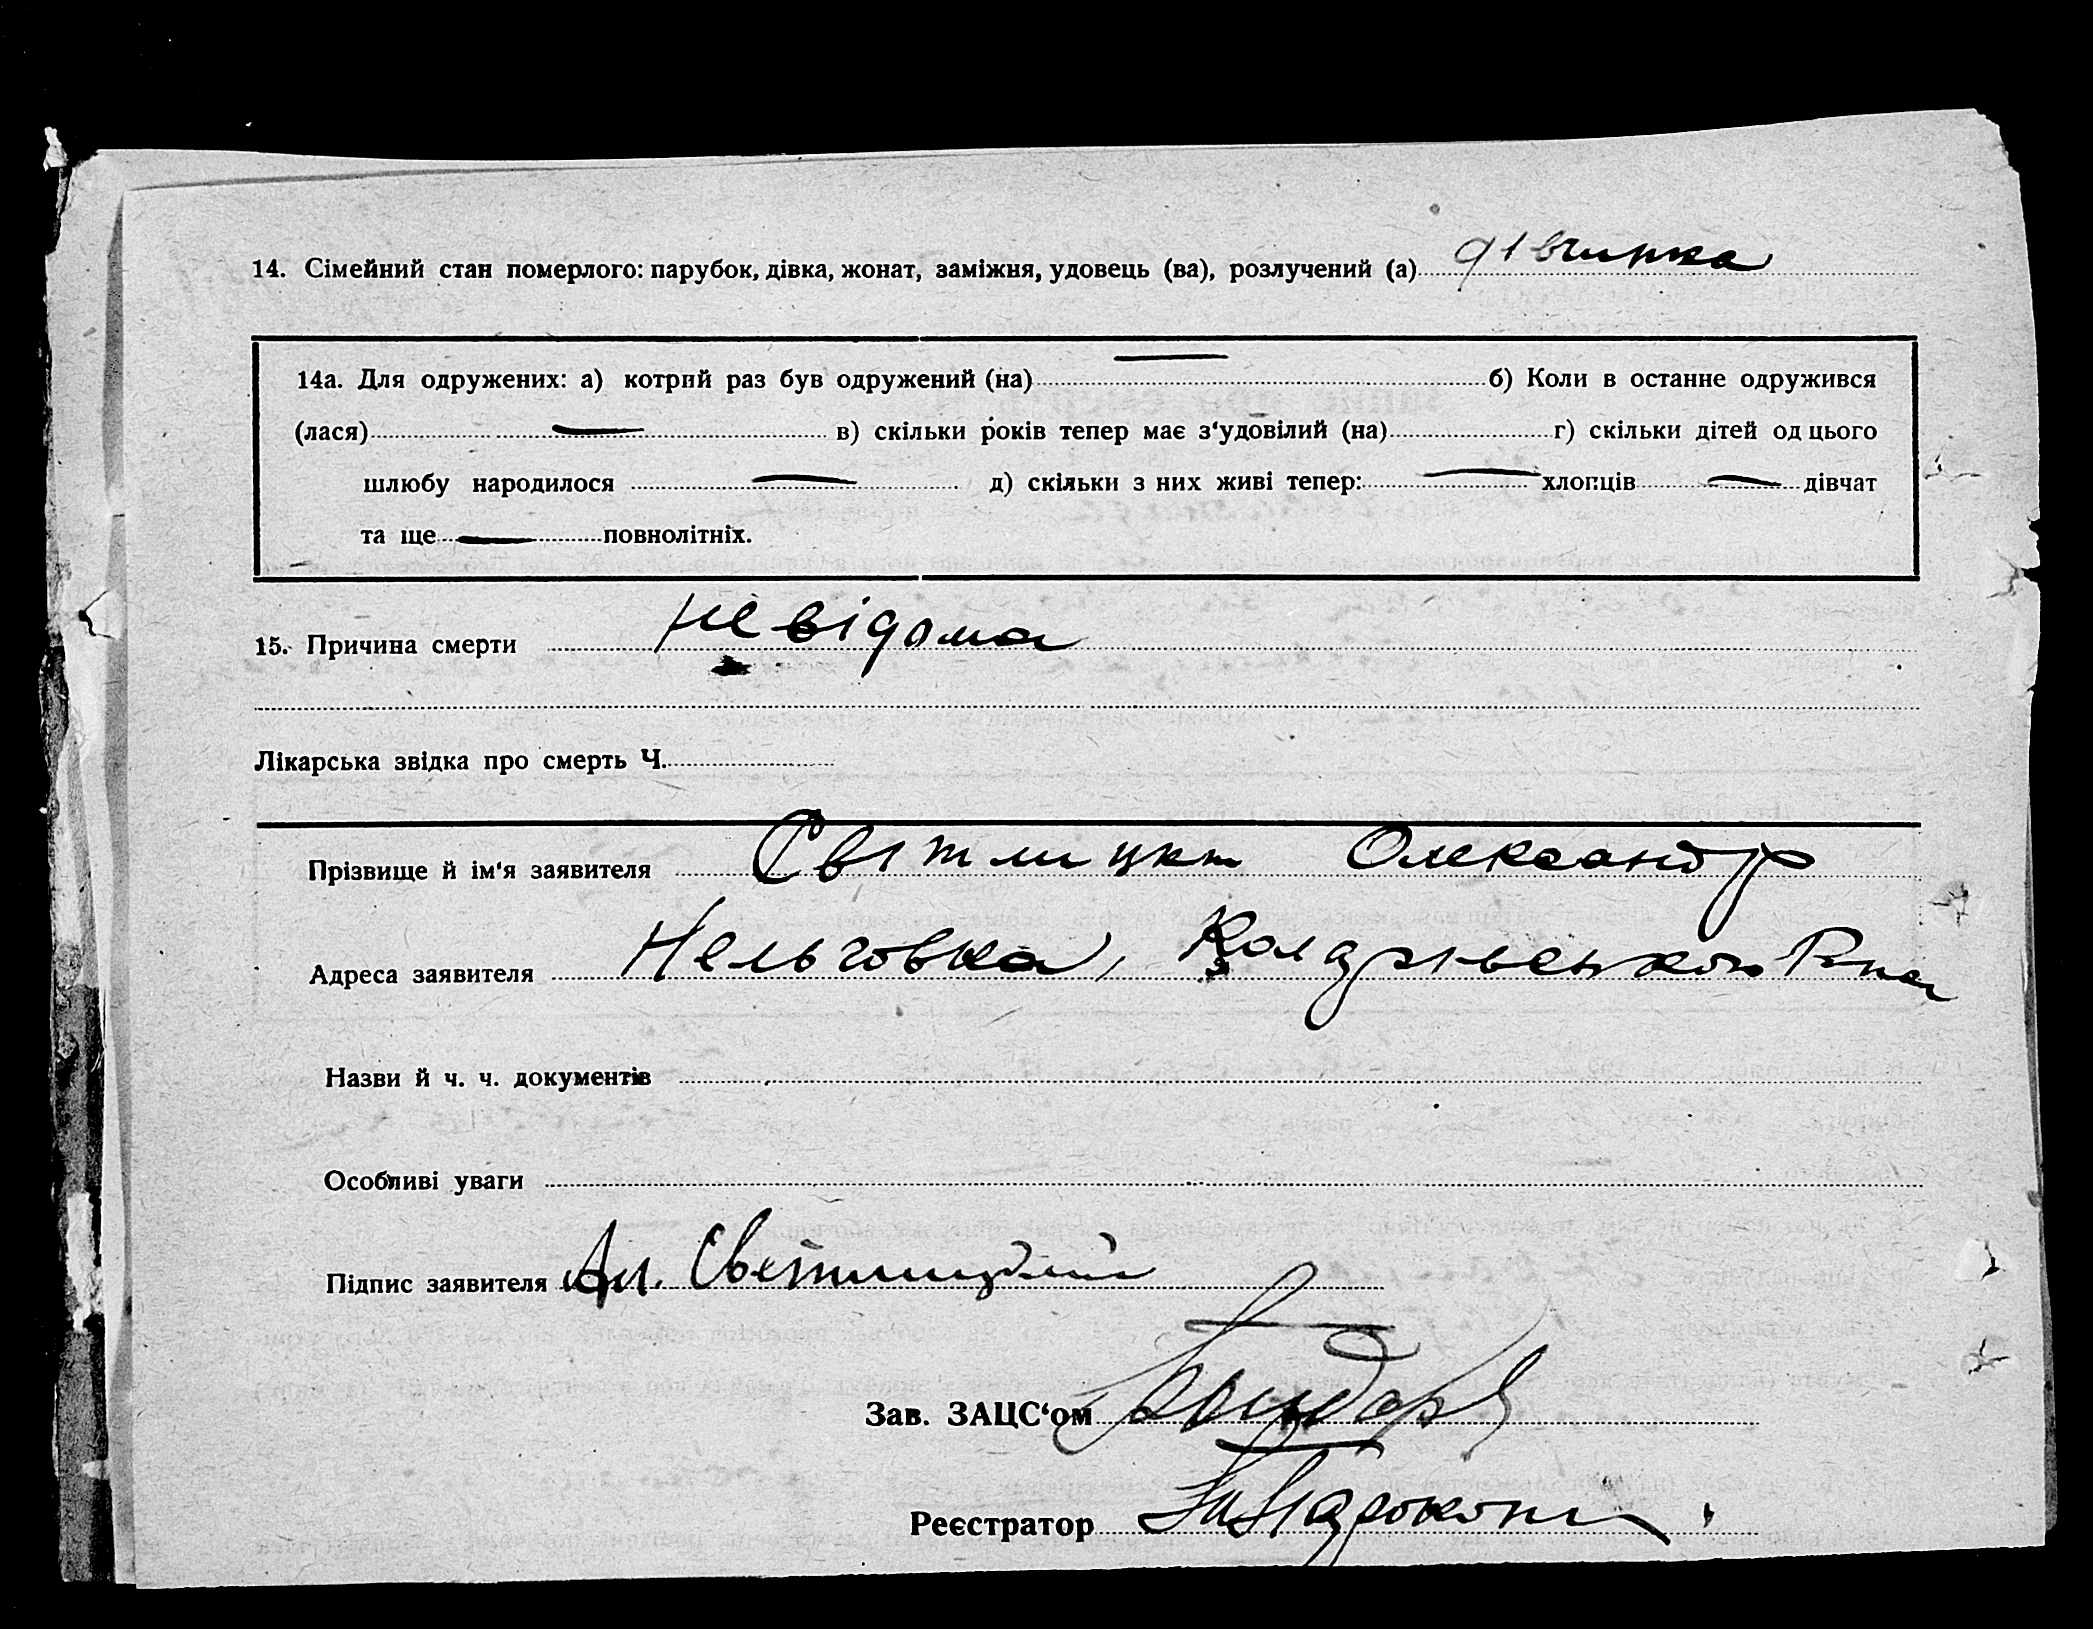 14. Сімейний стан померлого: парубок, дівка, жонат, заміжня, удовець (ва), розлучений (а) дівчинка
14а. Для одружених: а) котрий раз був одружений (на) — б) Коли в останнє одружився
(лася) — в) скільки років тепер має з‘удовілий (на) г) скільки дітей од цього
шлюбу народилося — д) скільки з них живі тепер: — хлопців — дівчат
та ще — повнолітніх.
15. Причина смерти невідома
Лікарська звідка про смерть Ч.
Прізвище й ім‘я заявителя Світлицкий Олександр
Адреса заявителя Нельговка,
Назви й ч. ч. документів
Особливі уваги
Підпис заявителя Ал. Светлицкий
Зав. ЗАЦС‘ом Бондар
Реєстратор